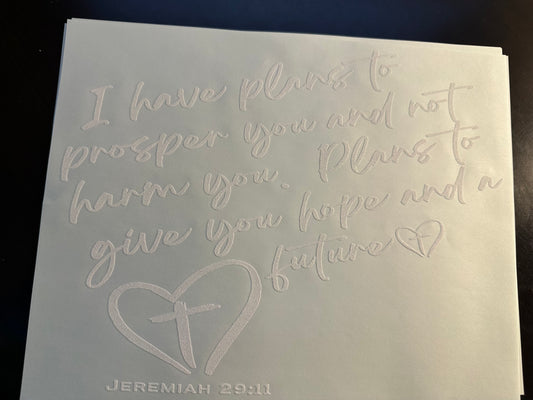 I have plans to
prosper you and not
harm you. Plans to
give you hope and a
future
JEREMIAH 29:11